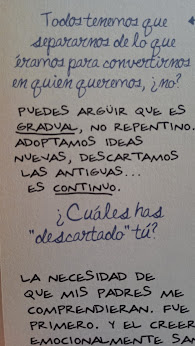 Todos tenemos que
separarnos de lo que
éramos para convertirnos
en quien queremos, ¿no?
PUEDES ARGÜIR QUE ES
GRADUAL, NO REPENTINO.
ADOPTAMOS IDEAS
NUEVAS, DESCARTAMOS
LAS ANTIGUAS...
ES CONTINUO.
¿Cuáles has
"descartado" tú?
LA NECESIDAD DE
QUE MIS PADRES ME
COMPRENDIERAN. FUE
PRIMERO. Y EL CREER
EMOCIONALMENTE SA